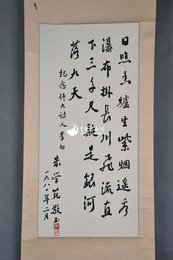 日照香爐生紫烟遙看
瀑布掛長川飛流直
下三千尺疑是銀河
落九天
紀念伟大詩人李白
朱学範敬书
一九八〇年二月